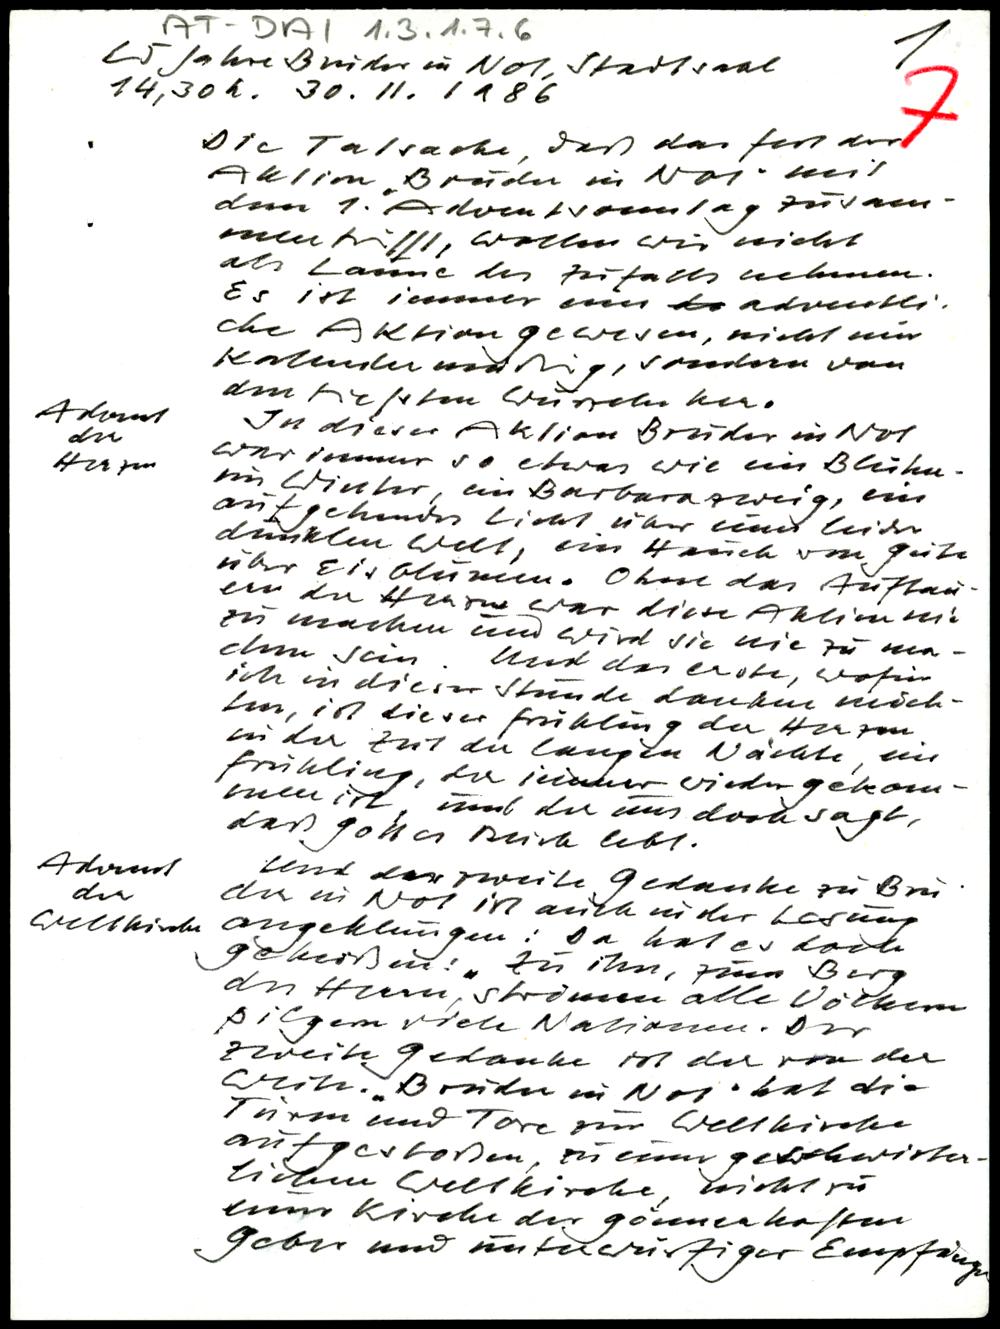 AT-DAI 1.3.1.7.6
1
25 Jahre Bruder in Not, Stadtsaal
14,30h. 30. 11. 1986
7
Die Tatsache, daß das Fest der
Aktion „Bruder in Not" mit
dem 1. Adventsonntag zusam-
mentrifft, wollen wir nicht
als Laune des Zufalls nehmen.
Es ist immer eine adventli-
che Aktion gewesen, nicht nur
kalendermäßig, sondern von
den tiefsten Wurzeln her.
Advent
der
Herzen
In dieser Aktion Bruder in Not
war immer so etwas wie ein Blühen
im Winter, ein Barbarazweig, ein
aufgehendes Licht über einer leider
dunklen Welt, ein Hauch von Güte
über Eisblumen. Ohne das Auftau-
en der Herzen war diese Aktion nie
zu machen und wird sie nie zu ma-
chen sein. Und das erste, wofür
ich in dieser Stunde danken möch-
te, ist dieser Frühling der Herzen
in der Zeit der langen Nächte, ein
Frühling, der immer wieder gekom-
men ist, und der uns doch sagt,
daß Gottes Reich lebt.
Advent
der
Weltkirche
Und der zweite Gedanke zu Bru-
der in Not ist auch in der Lesung
angeklungen: Da hat es doch
geheißen: „Zu ihm, zum Berg
des Herrn, strömen alle Völker
pilgern viele Nationen. Der
zweite Gedanke ist der von der
Weite. „Bruder in Not" hat die
Türen und Tore zur Weltkirche
aufgestoßen, zu einer geschwister-
lichen Weltkirche, nicht zu
einer Kirche der gönnerhaften
Geber und unterwürfiger Empfänger